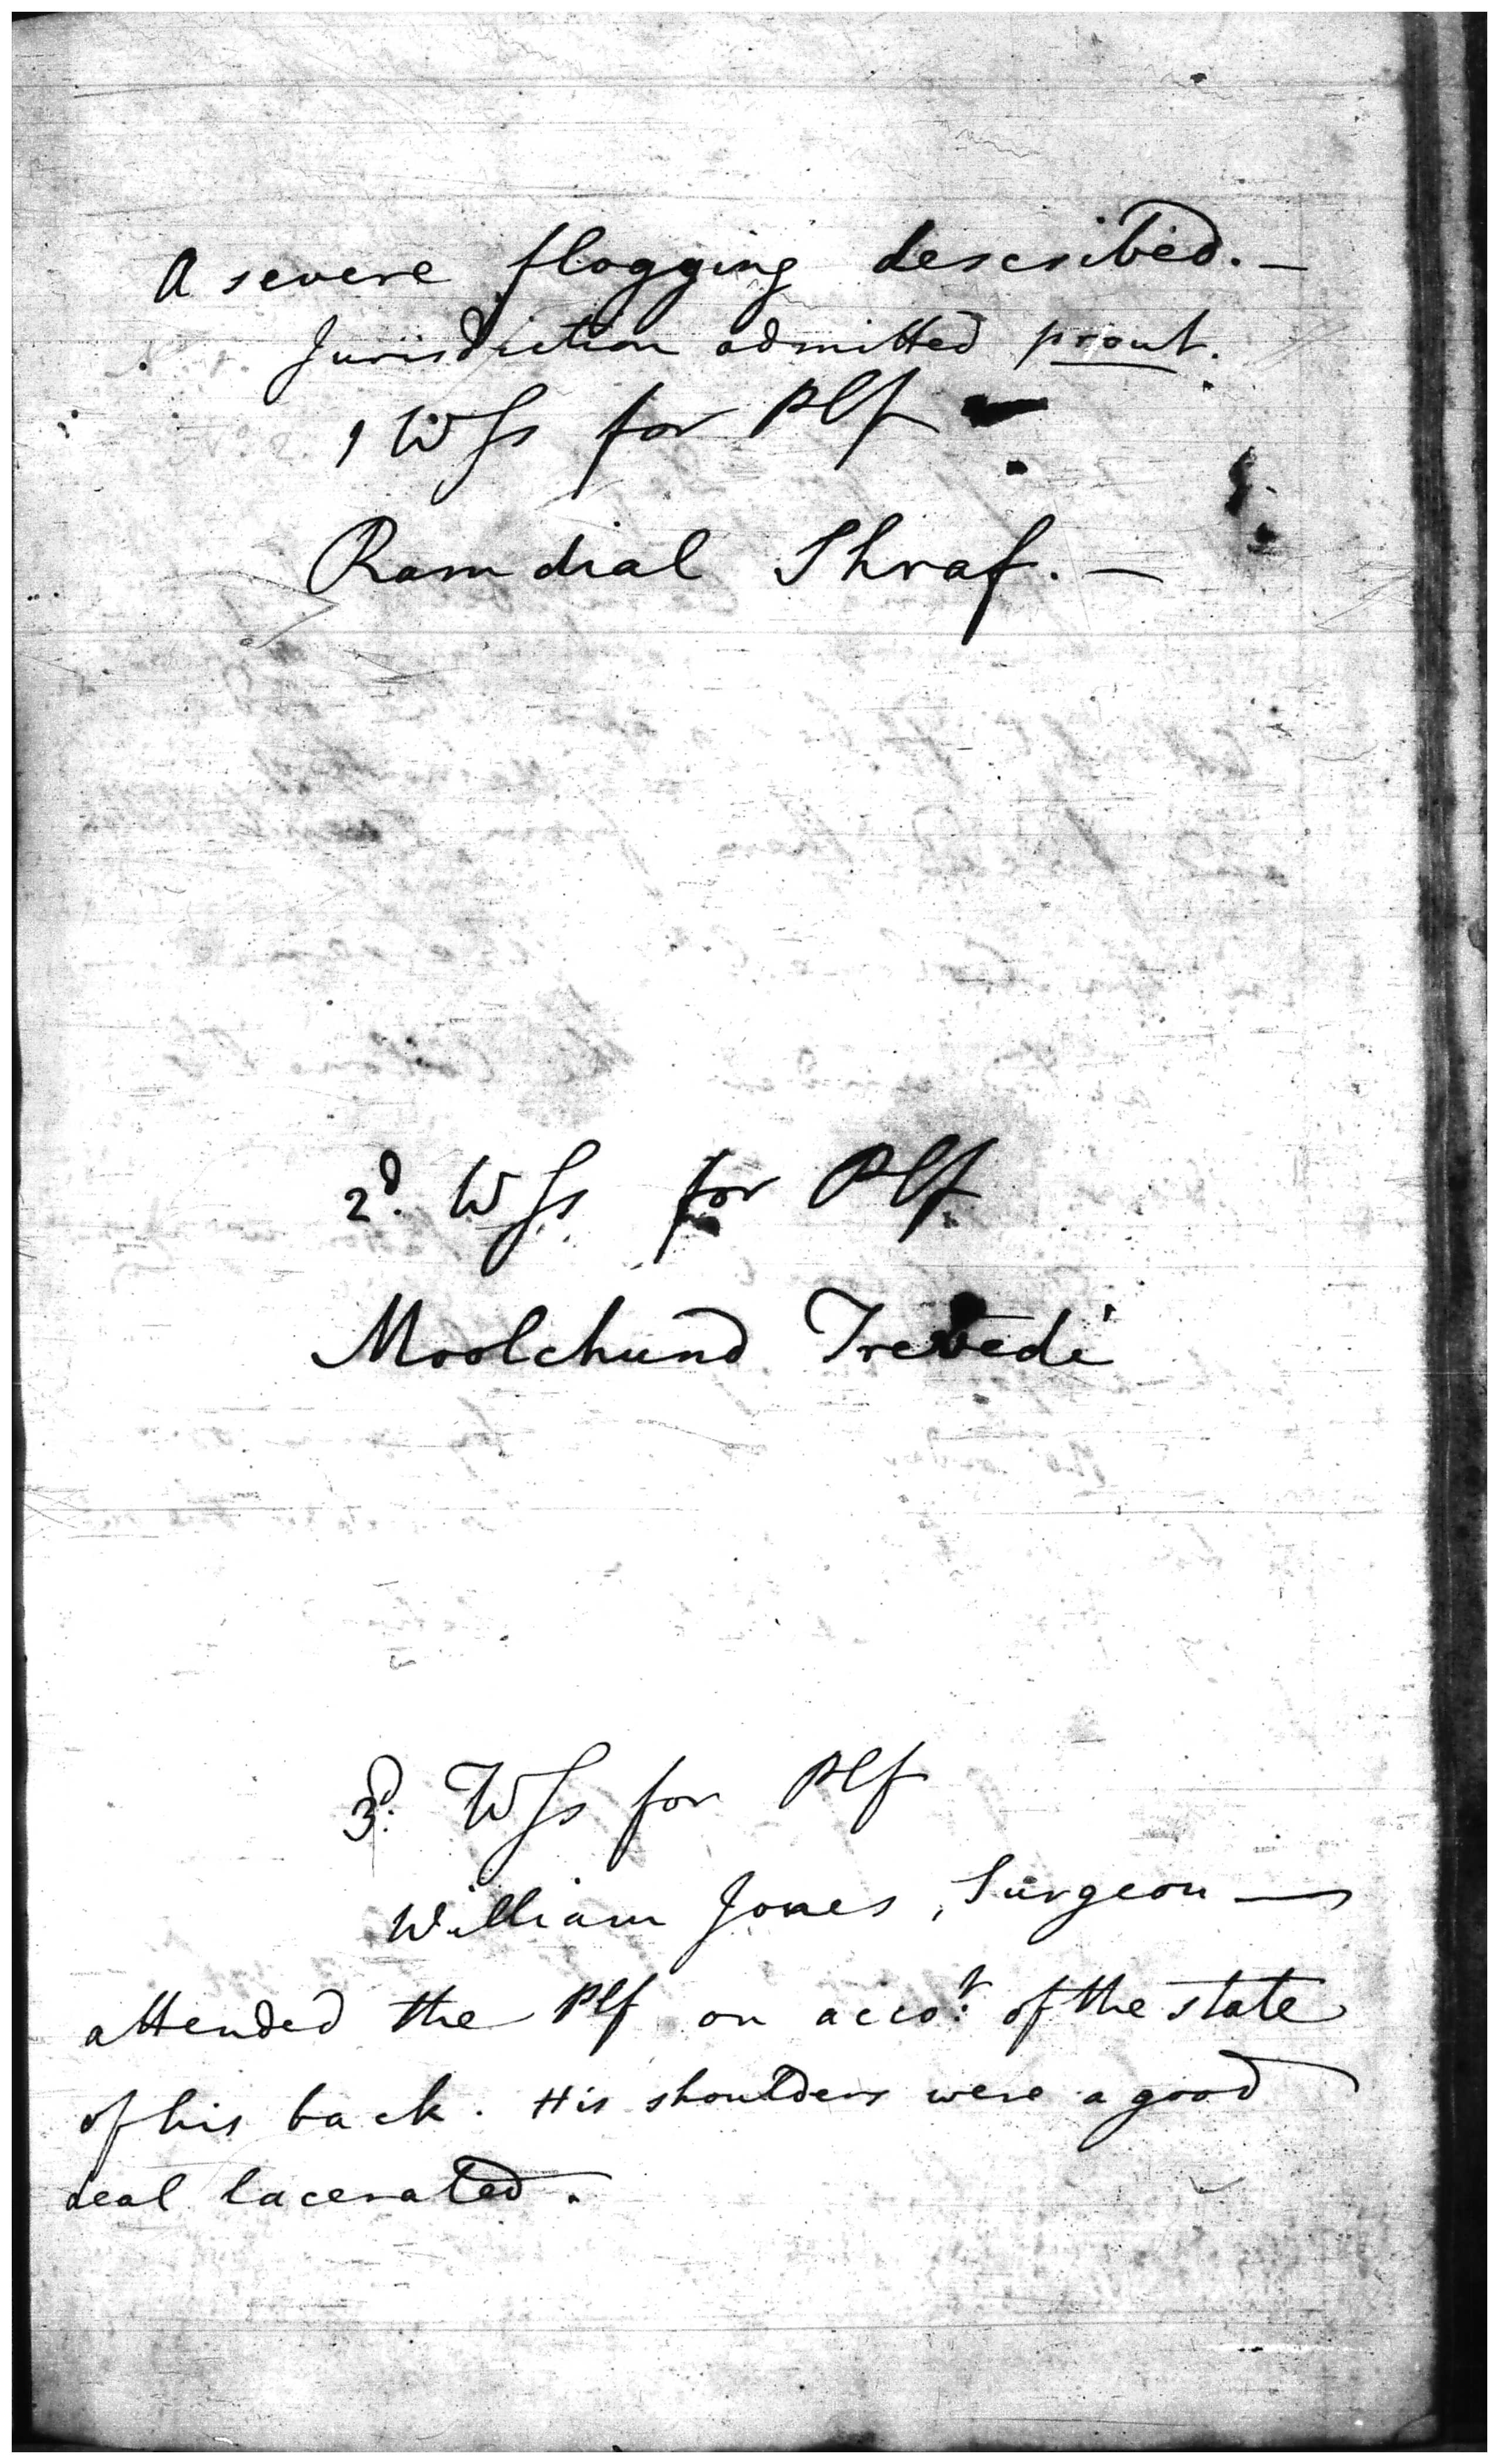 A severe flogging described. —
Jurisdiction admitted prout.
1 Wſs for Plf —
Ramdial Shraf. —
2d. Wſs for Plf
Moolchund Trevedi
3d: Wſs for Plf
William Jones, Surgeon —
attended the Plf on acco:t of the state
of his back. His shoulders were a good
deal lacerated.